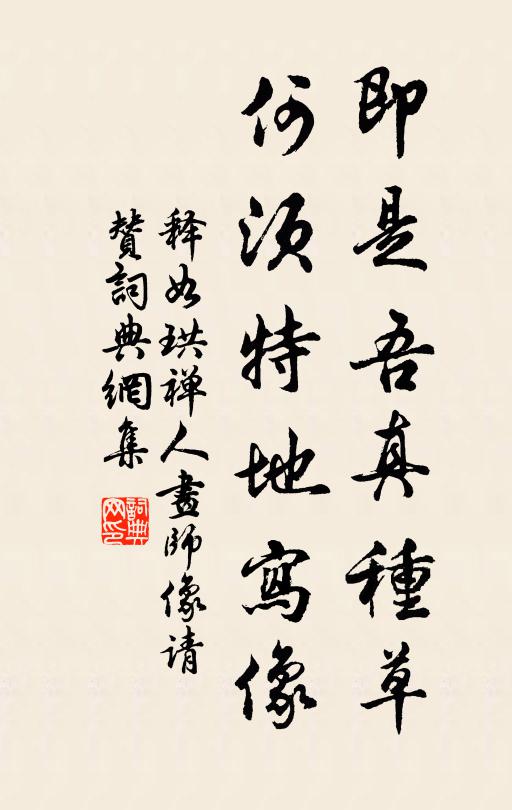 即是吾真種草
何須特地寫像
释如珙禅人畫師像请
贊詞典網集
詞典网印